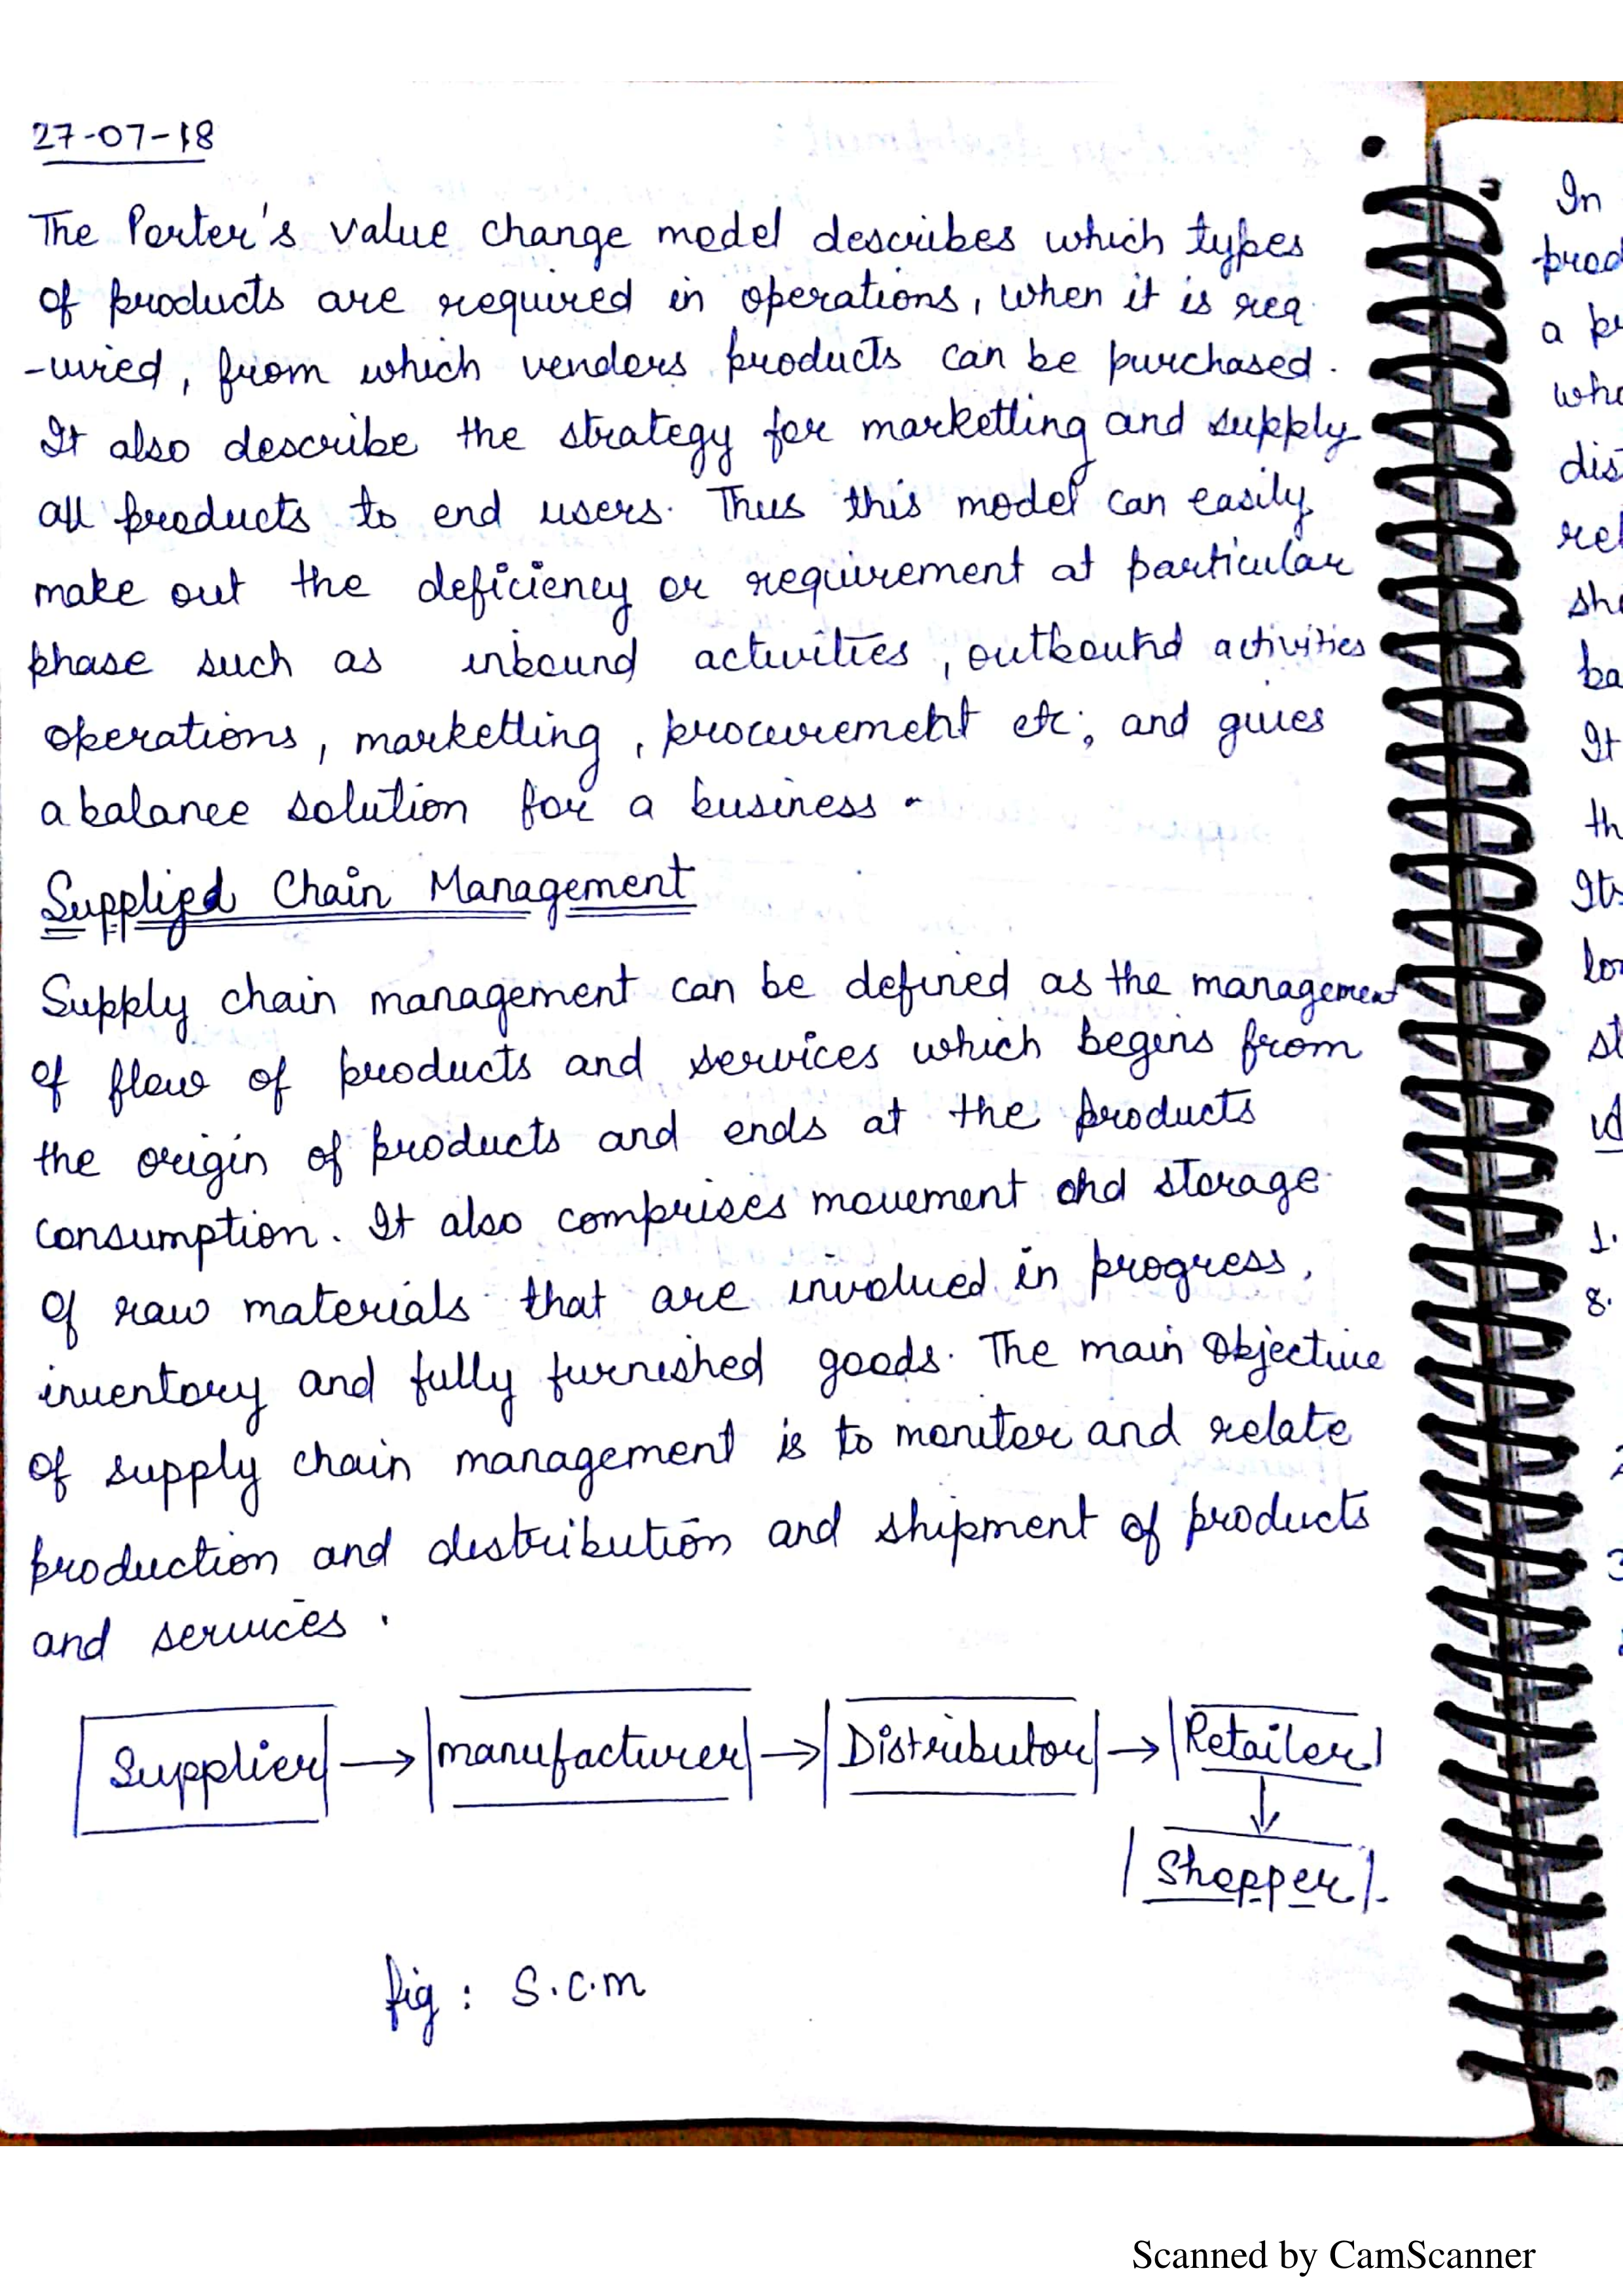 27-07-18
The Porter's value change model describes which types
of products are required in operations, when it is req
-uired, from which vendors products can be purchased.
It also describe the strategy for marketting and supply
all products to end users. Thus this model can easily
make out the deficiency or requirement at particular
phase such as inbound activities, outbound activities
operations, marketting, procurement etc; and gives
a balance solution for a business.
Supplied Chain Management
Supply chain management can be defined as the management
of flow of products and services which begins from
the origin of products and ends at the products
consumption. It also comprises movement and storage
of raw materials that are involved in progress,
inventory and fully furnished goods. The main objective
of supply chain management is to monitor and relate
production and distribution and shipment of products
and services.
Supplier → manufacturer → Distributor → Retailer
↓
Shopper
fig : S.C.M
In
a
It
Its
1.
8.
Scanned by CamScanner